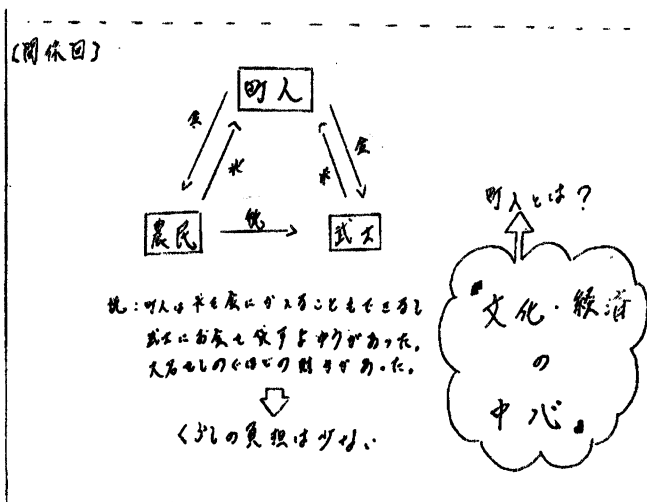 〔関係図〕
町人
金
米
金
米
農民
税
武士
説:町人は米を金にかえることもできるし
武士にお金を貸すよゆうがあった。
大名をしのぐほどの財力があった。
くらしの負担は少ない
町人とは?
『文化・経済
の
中心』